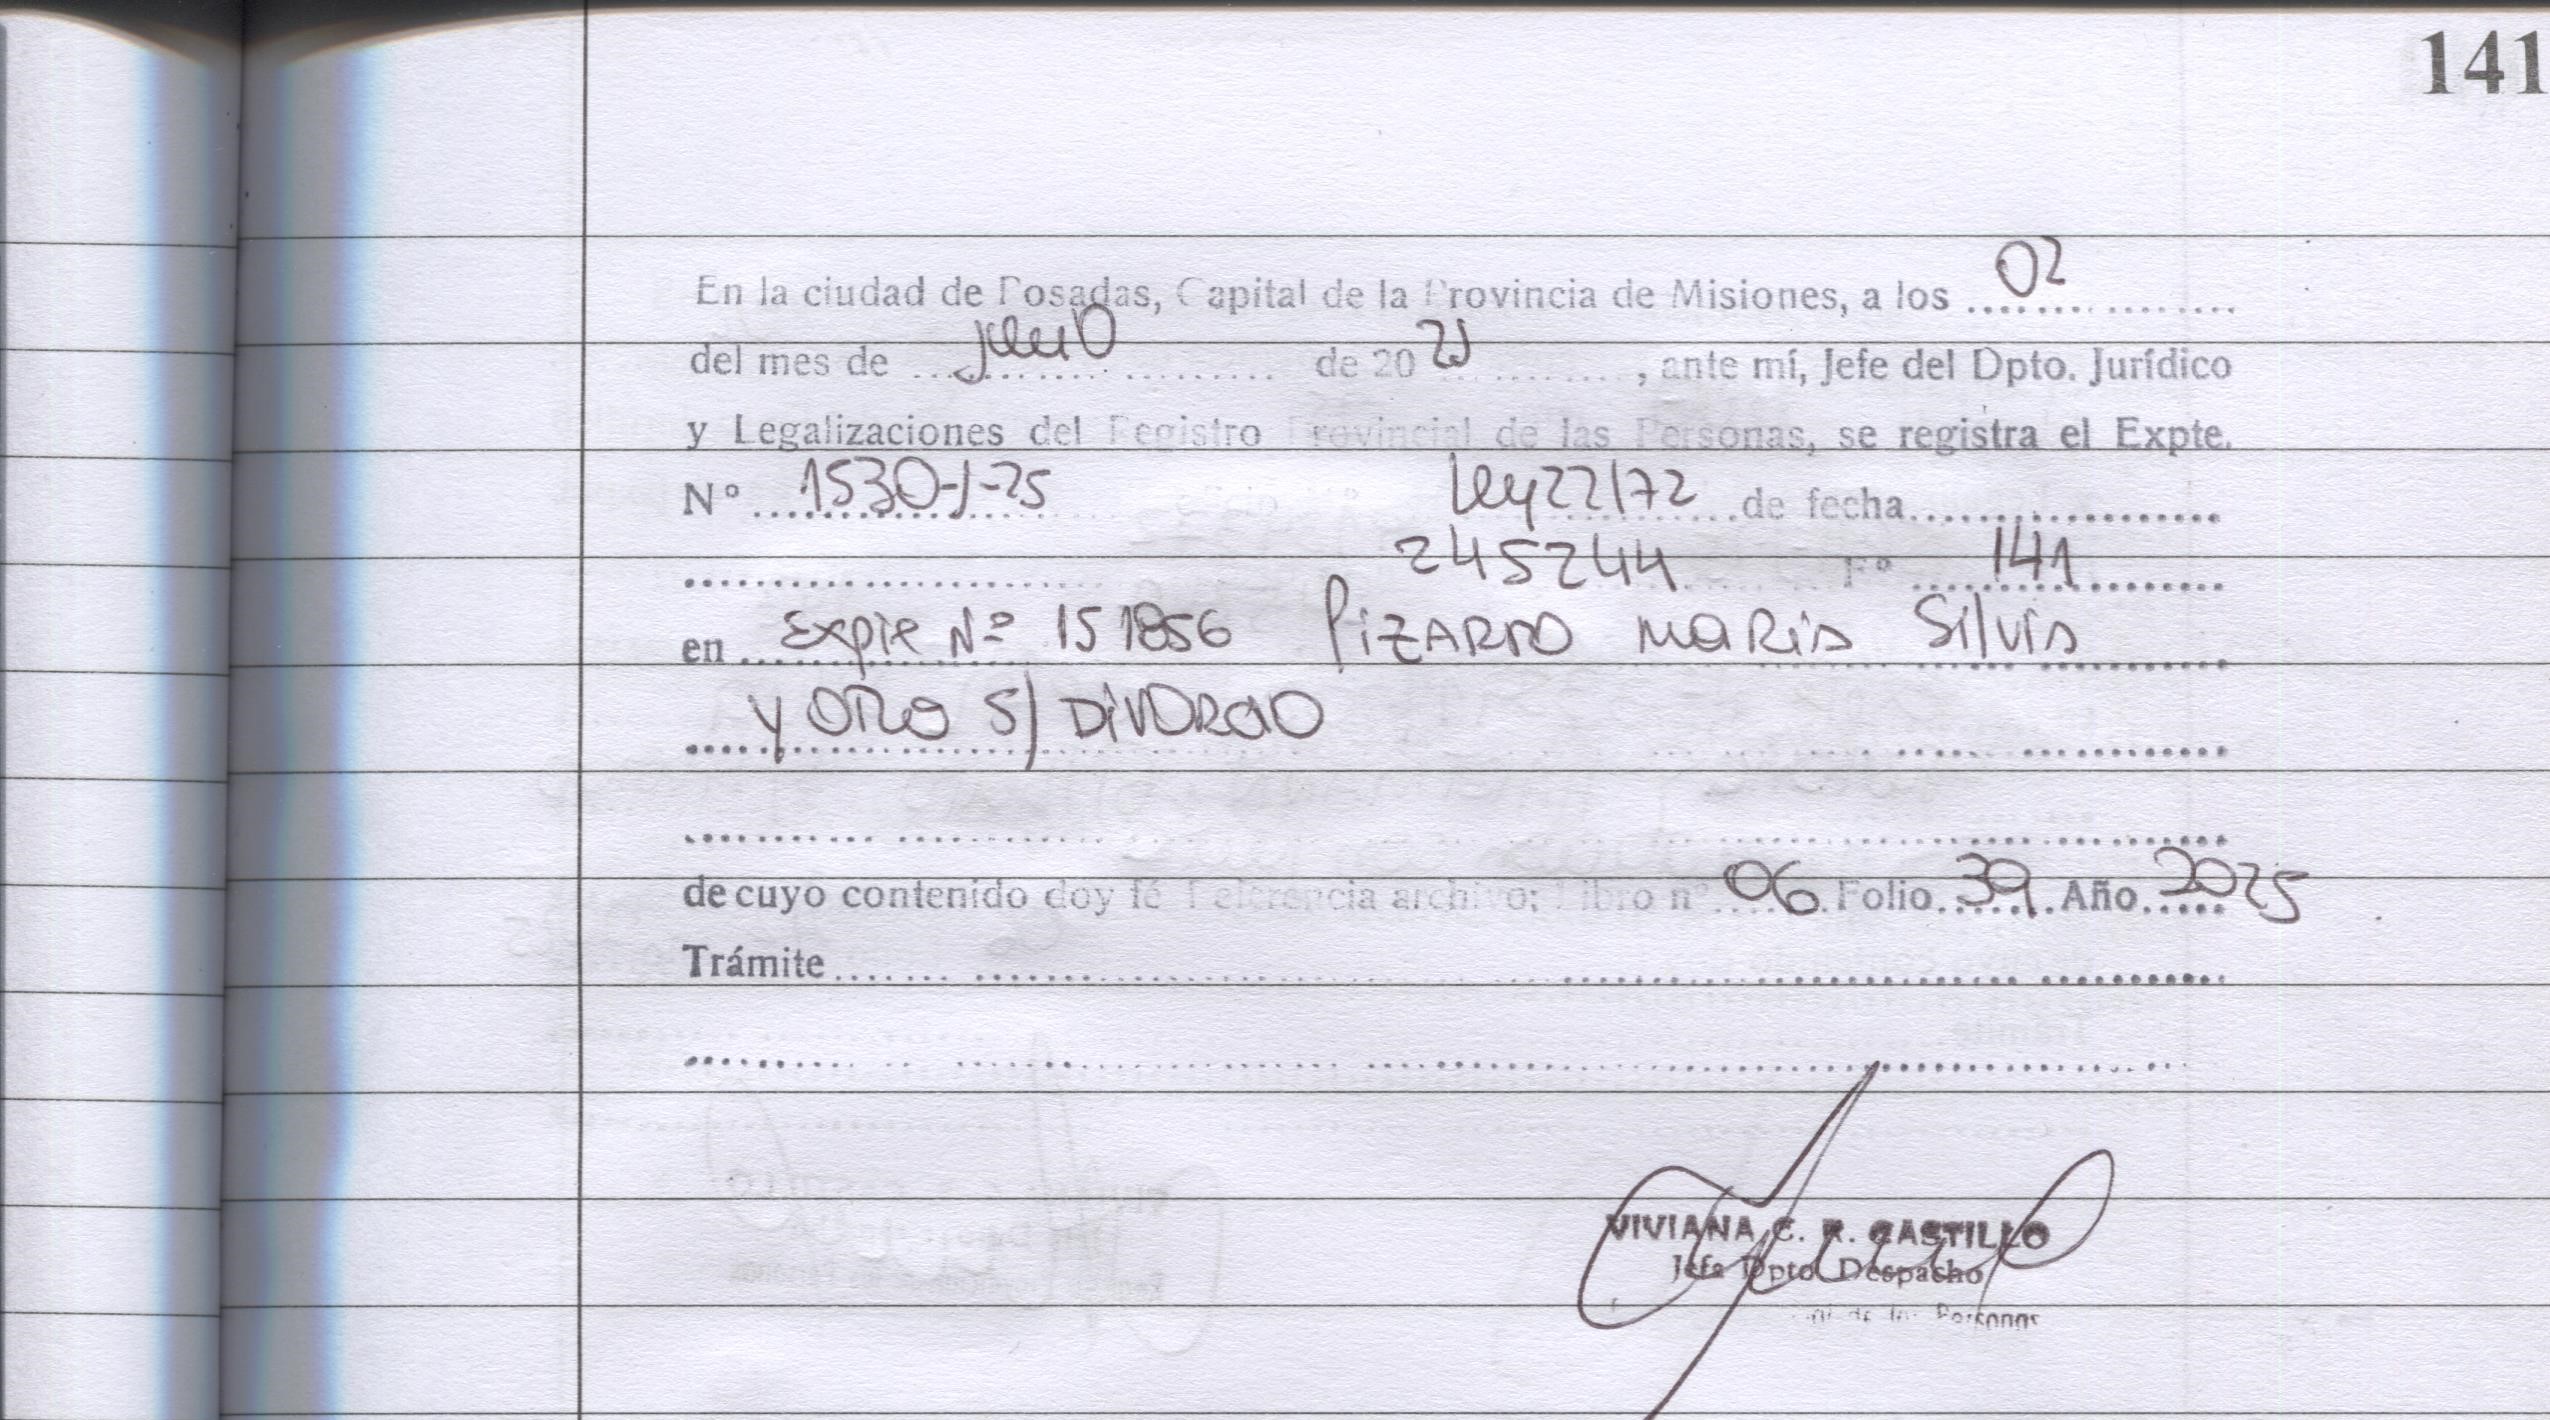 141
En la ciudad de Posadas, Capital de la Provincia de Misiones, a los 02
del mes de de 2025, ante mí, Jefe del Dpto. Jurídico
y Legalizaciones del Registro Provincial de las Personas, se registra el Expte.
Nº 1530-J-25 Ley 22172 de fecha
245244 Fº 141
en Expte Nº 151856 Pizarro Maria Silvia
y otro s/ Divorcio
de cuyo contenido doy fé Referencia archivo; Libro nº 06 Folio 39 Año 2025
Trámite
VIVIANA C. R. CASTILLO
Jefa Dpto Despacho
de las Personas